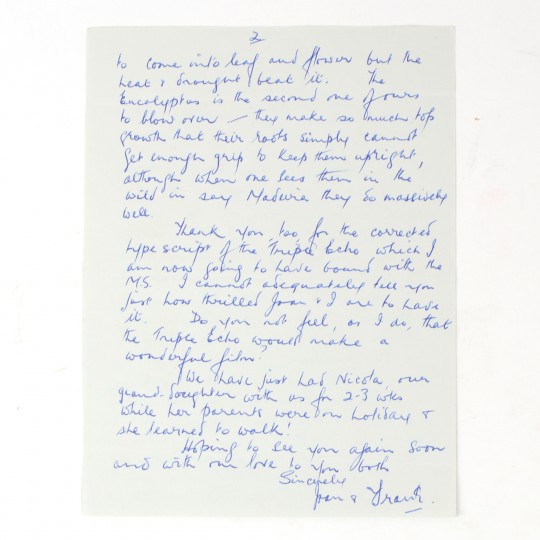 2
to come into leaf and flower but the
heat & drought beat it. The
Eucalyptus is the second one of ours
to blow over — they make so much top
growth that their roots simply cannot
get enough grip to keep them upright,
although when one sees them in the
wild in say Madeira they do massively
well.
Thank you, too, for the corrected
typescript of the Triple Echo which I
am now going to have bound with the
M.S. I cannot adequately tell you
just how thrilled Joan & I are to have
it. Do you not feel, as I do, that
the Triple Echo would make a
wonderful film?
We have just had Nicola, our
grand-daughter with us for 2-3 wks
while her parents were on holiday &
she learned to walk!
Hoping to see you again soon
and with our love to you both
Sincerely
Joan & Frank.